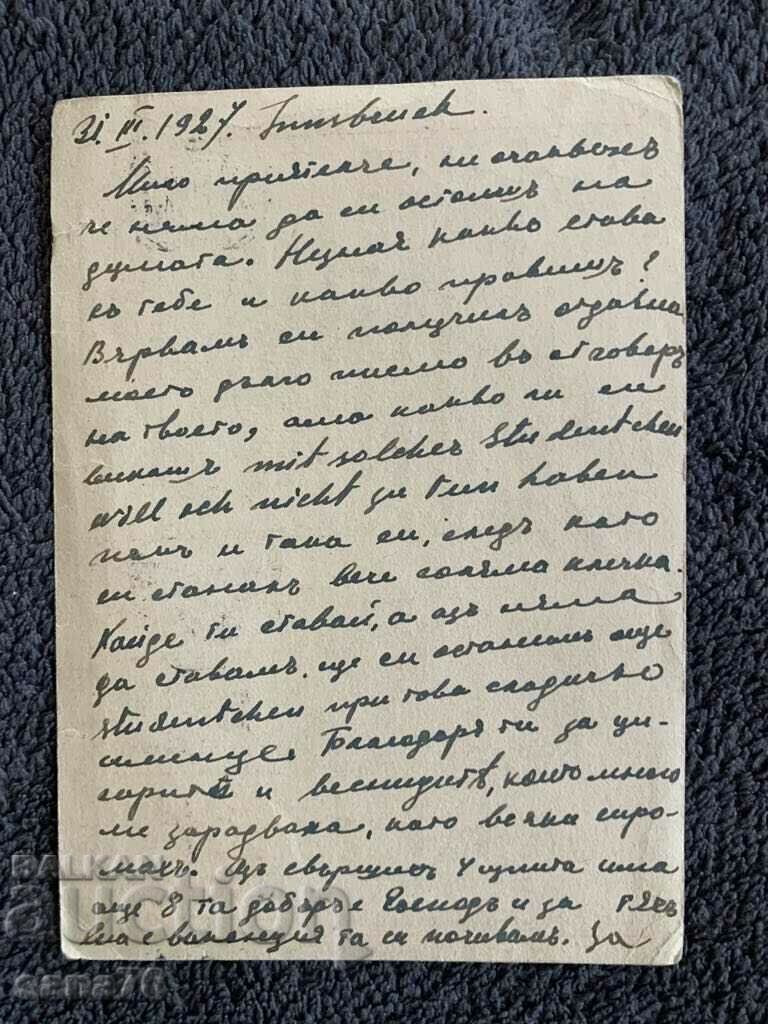 31.III.1927. Innsbruck.
Мило приятелче, не очаквахъ
че няма да си остоишъ на
думата. Незная какво става
съ тебе и какво правишъ?
Вѣрвамъ си получилъ отдавна
моето дълго писмо въ отговоръ
на твоето, ама какво ли си
викашъ mit solcher Studentchen
will ich nicht zu tun haben
нали и така си, следъ като
си станалъ вече голѣма клечка.
Хайде ти ставай, а азъ няма
да ставамъ, ще си останемъ още
studentchen при това сладичко
Благодаря ти за ци-
гаритѣ и вестницитѣ, които много
ме зарадваха, като всѣки сиро-
махъ. Азъ свършихъ 4 изпита има
още 8 та добъръ е Господь и за тѣхъ
Сега е ваканция та си почивамъ. За
BALKAN
auction
cena76